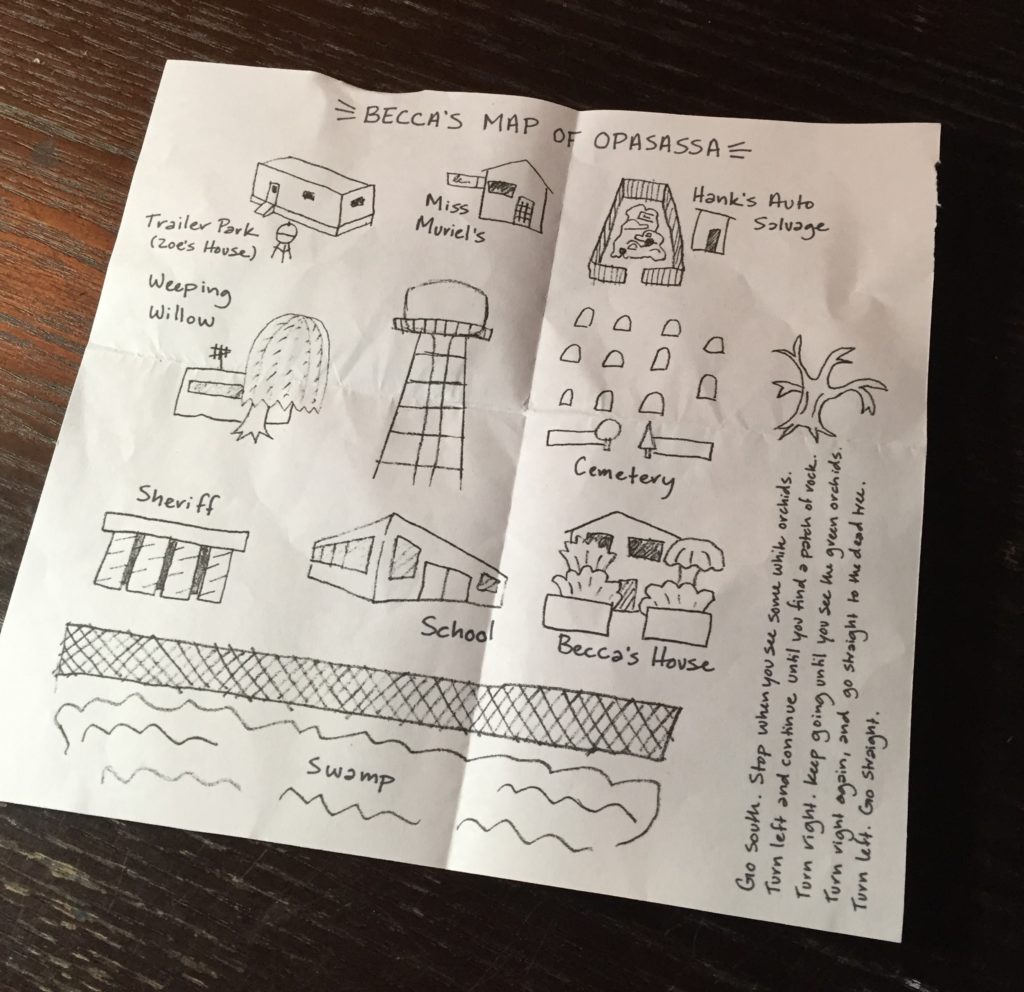 BECCA'S MAP OF OPASASSA
Trailer Park
(Zoe's House)
Miss
Muriel's
Hank's Auto
Salvage
Weeping
Willow
Cemetery
Sheriff
School
Becca's House
Swamp
Go South. Stop when you see some white orchids.
Turn left and continue until you find a patch of rock.
Turn right. Keep going until you see the green orchids.
Turn right again, and go straight to the dead tree.
Turn left. Go straight.